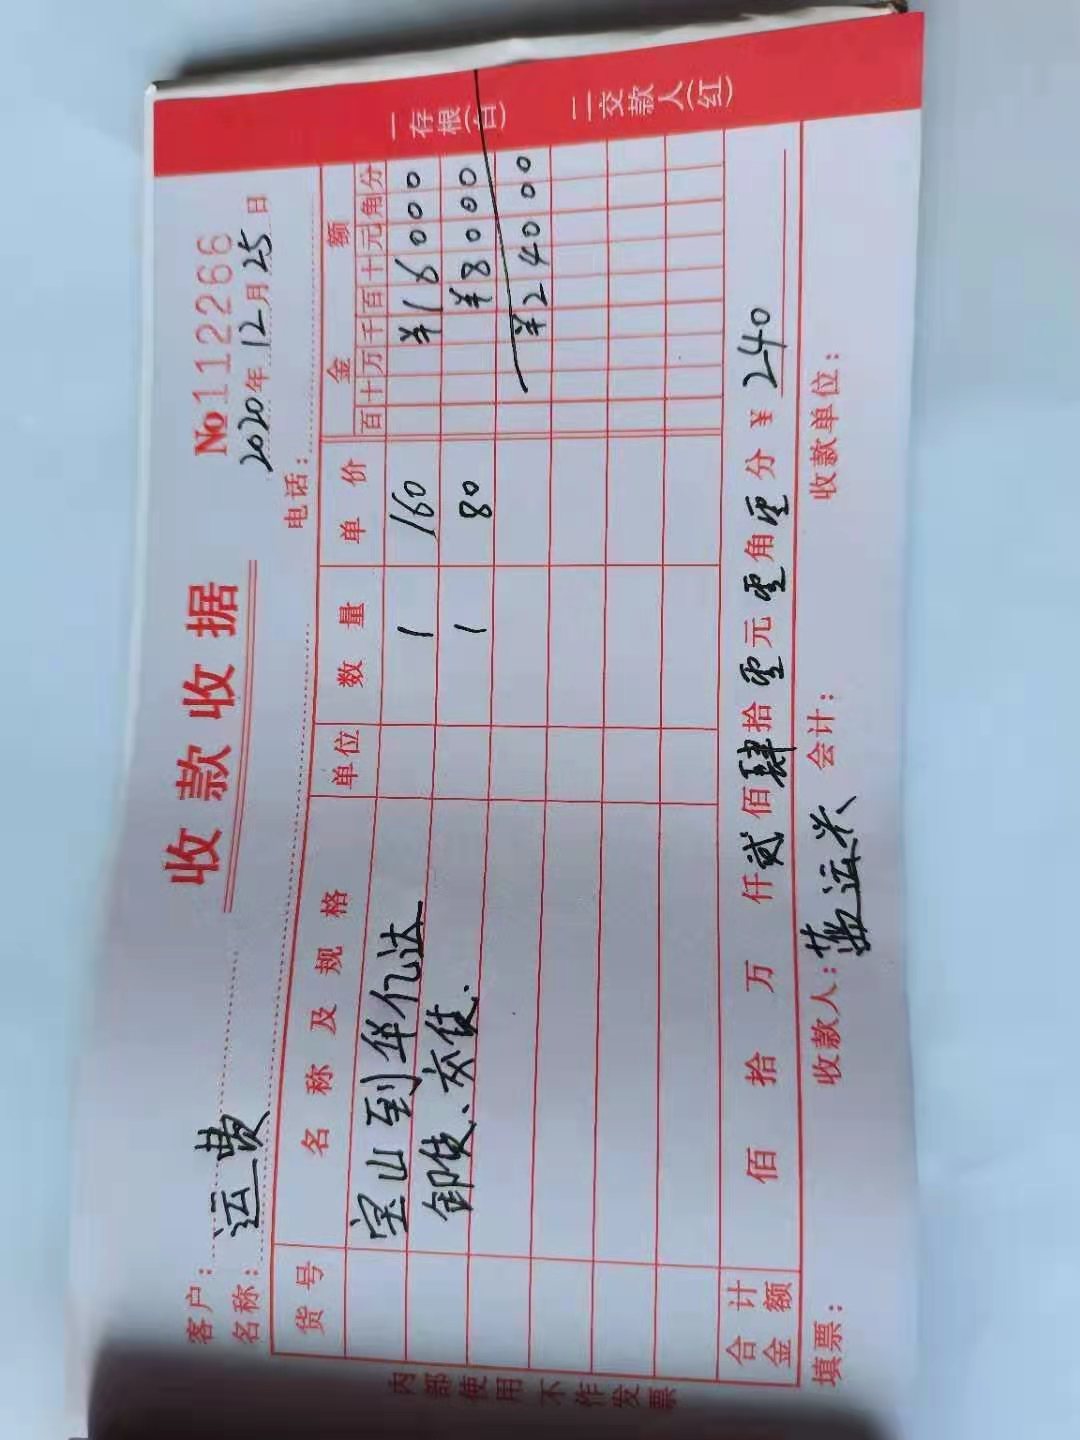 收款收据
№1112266
2020年12月25日
客户
名称：运费
电话：
货号 名称及规格 单位 数量 单价 金额
百十万千百十元角分
宝山到华亿达 1 160 ¥16000
卸货、交货. 1 80 ¥8000
¥24000
合计金额 佰 拾 万 仟贰佰肆拾零元零角零分 ¥240
填票： 收款人： 会计： 收款单位：
一存根(白) 二交款人(红)
内部使用不作发票